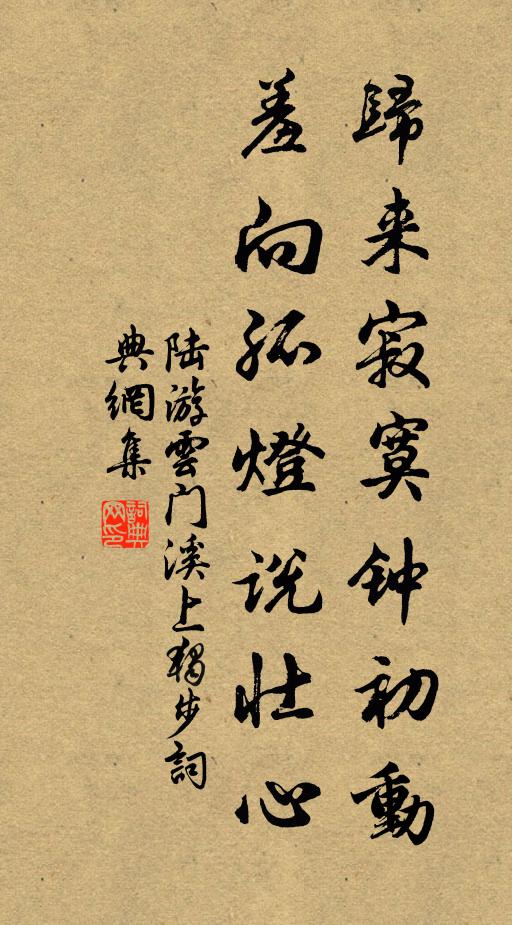 歸来寂寞钟初動
羞向孤燈说壮心
陆游雲门溪上獨步詞
典網集
詞典
网印